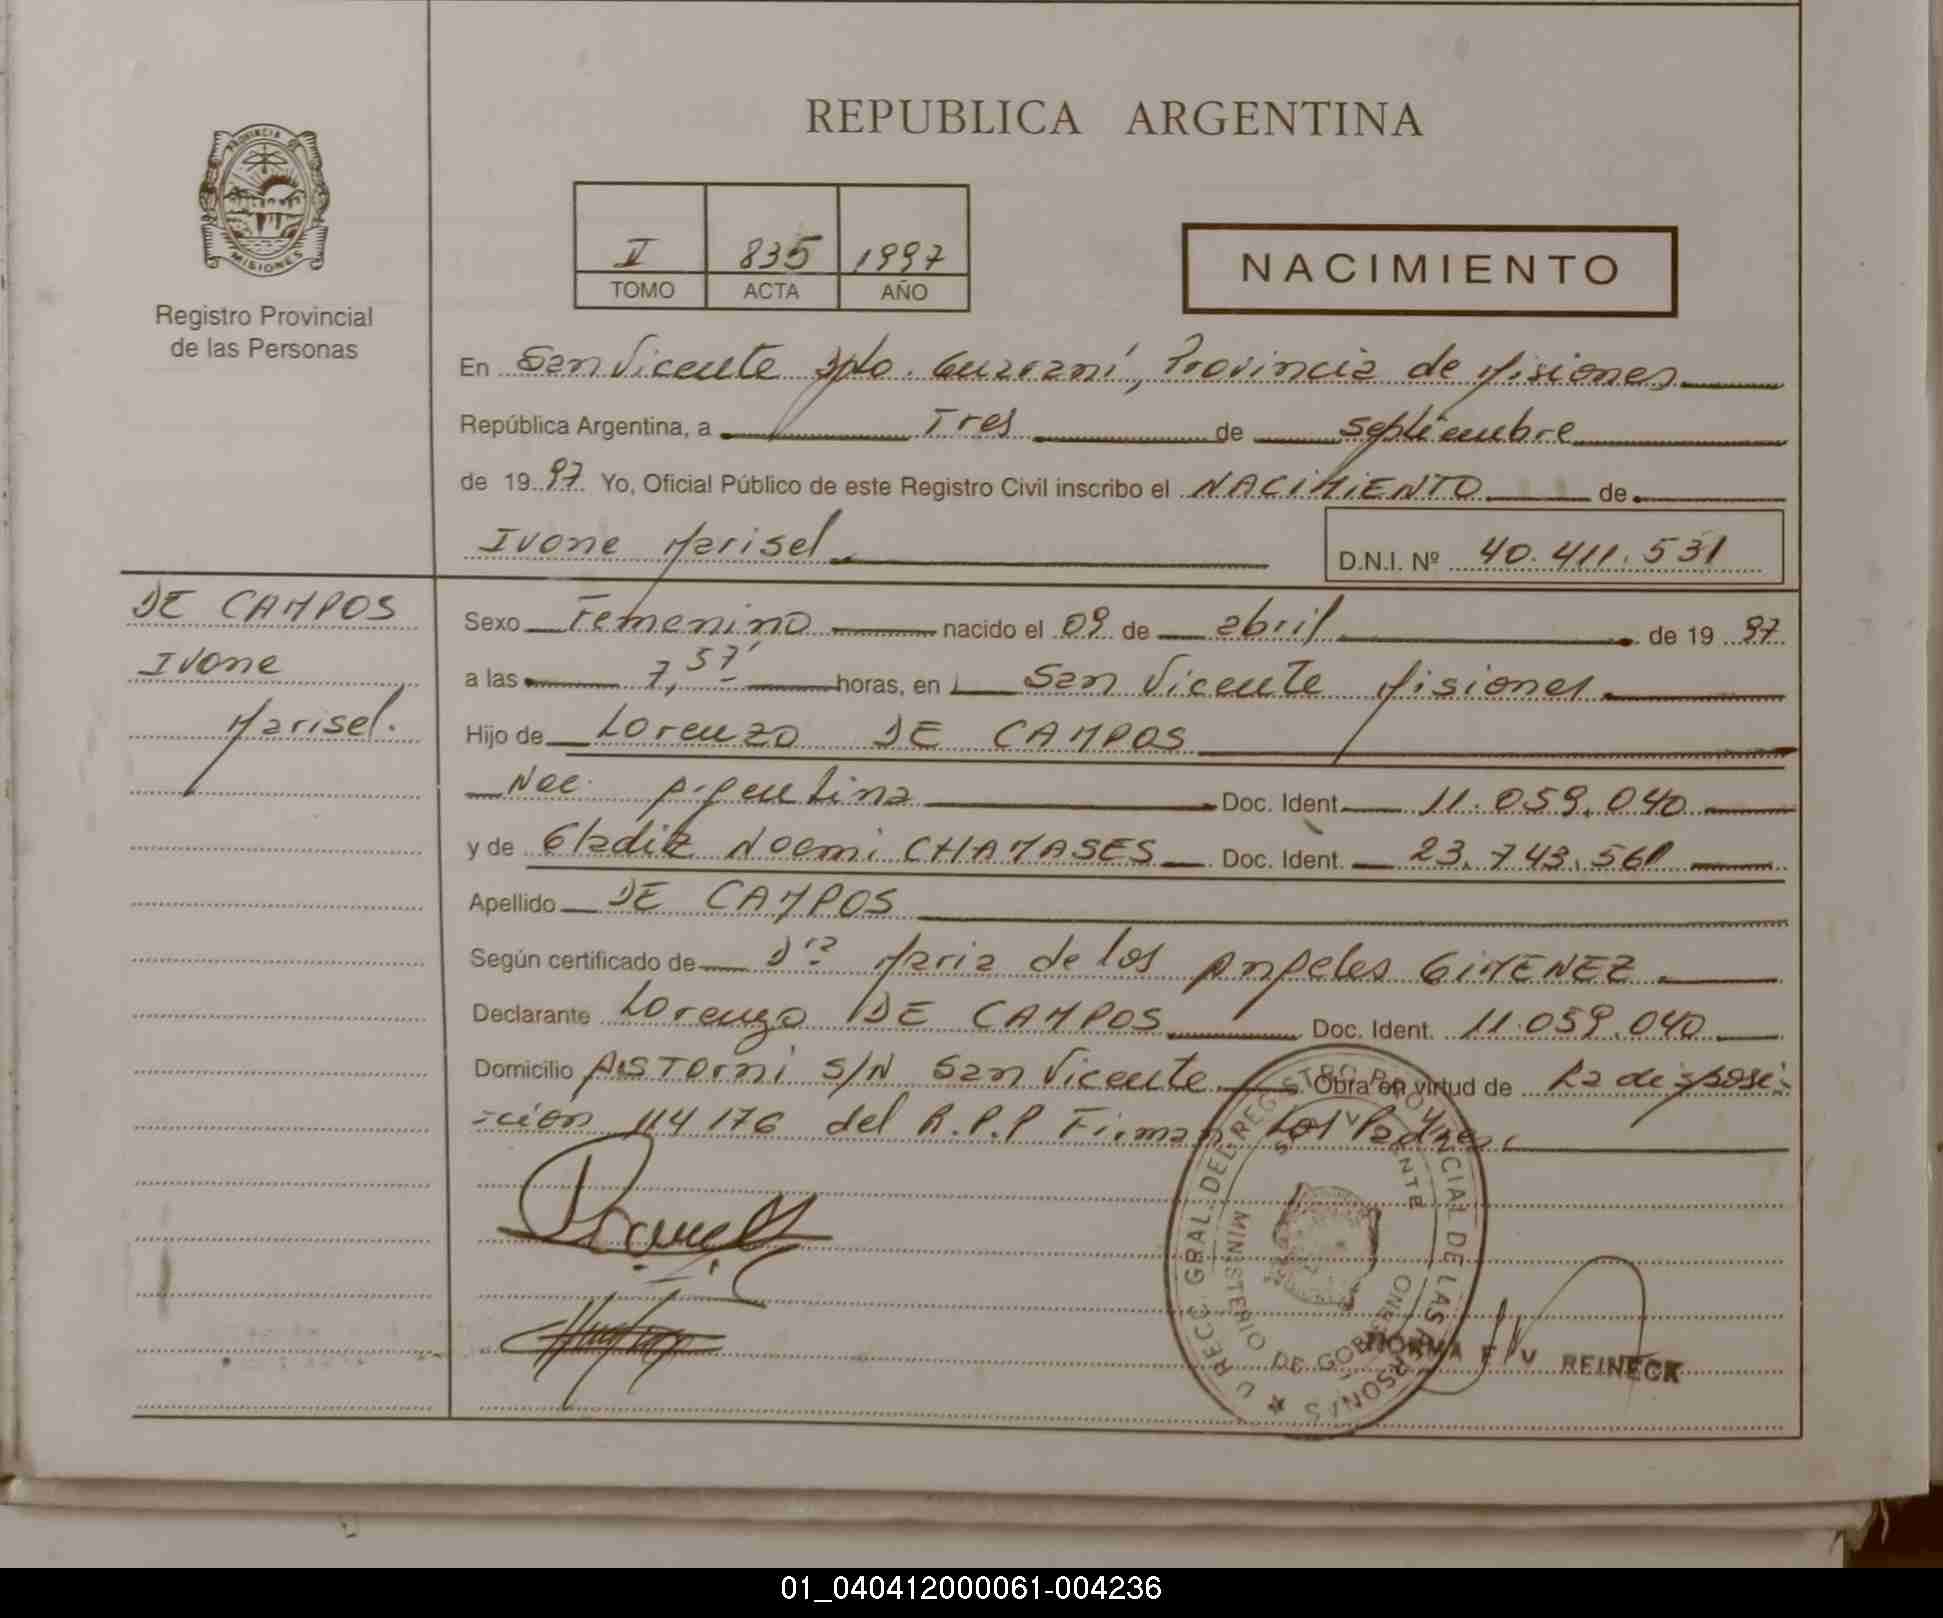 REPUBLICA ARGENTINA
PROVINCIA DE
MISIONES
Registro Provincial
de las Personas
V 835 1997
TOMO ACTA AÑO
NACIMIENTO
En San Vicente Dpto. Guaraní, Provincia de Misiones
República Argentina, a Tres de septiembre
de 1997 Yo, Oficial Público de este Registro Civil inscribo el NACIMIENTO de
Ivone Marisel
D.N.I. Nº 40.411.531
DE CAMPOS
Ivone
Marisel.
Sexo Femenino nacido el 09 de abril de 1997
a las 7,57' horas, en San Vicente Misiones
Hijo de Lorenzo DE CAMPOS
Nac. Argentina Doc. Ident. 11.059.040
y de Gladiz Noemi CHAMASES Doc. Ident. 23.743.561
Apellido DE CAMPOS
Según certificado de Dra Maria de los Angeles GIMENEZ
Declarante Lorenzo DE CAMPOS Doc. Ident. 11.059.040
Domicilio A.STorni S/N San Vicente Obra en virtud de La disposi-
-cion 114176 del R.P.P Firman Los Padres
GRAL. DEL REGISTRO PROVINCIAL DE LAS PERSONAS
SAN VICENTE
MINISTERIO DE GOBIERNO
NORMA REINECK
01_040412000061-004236